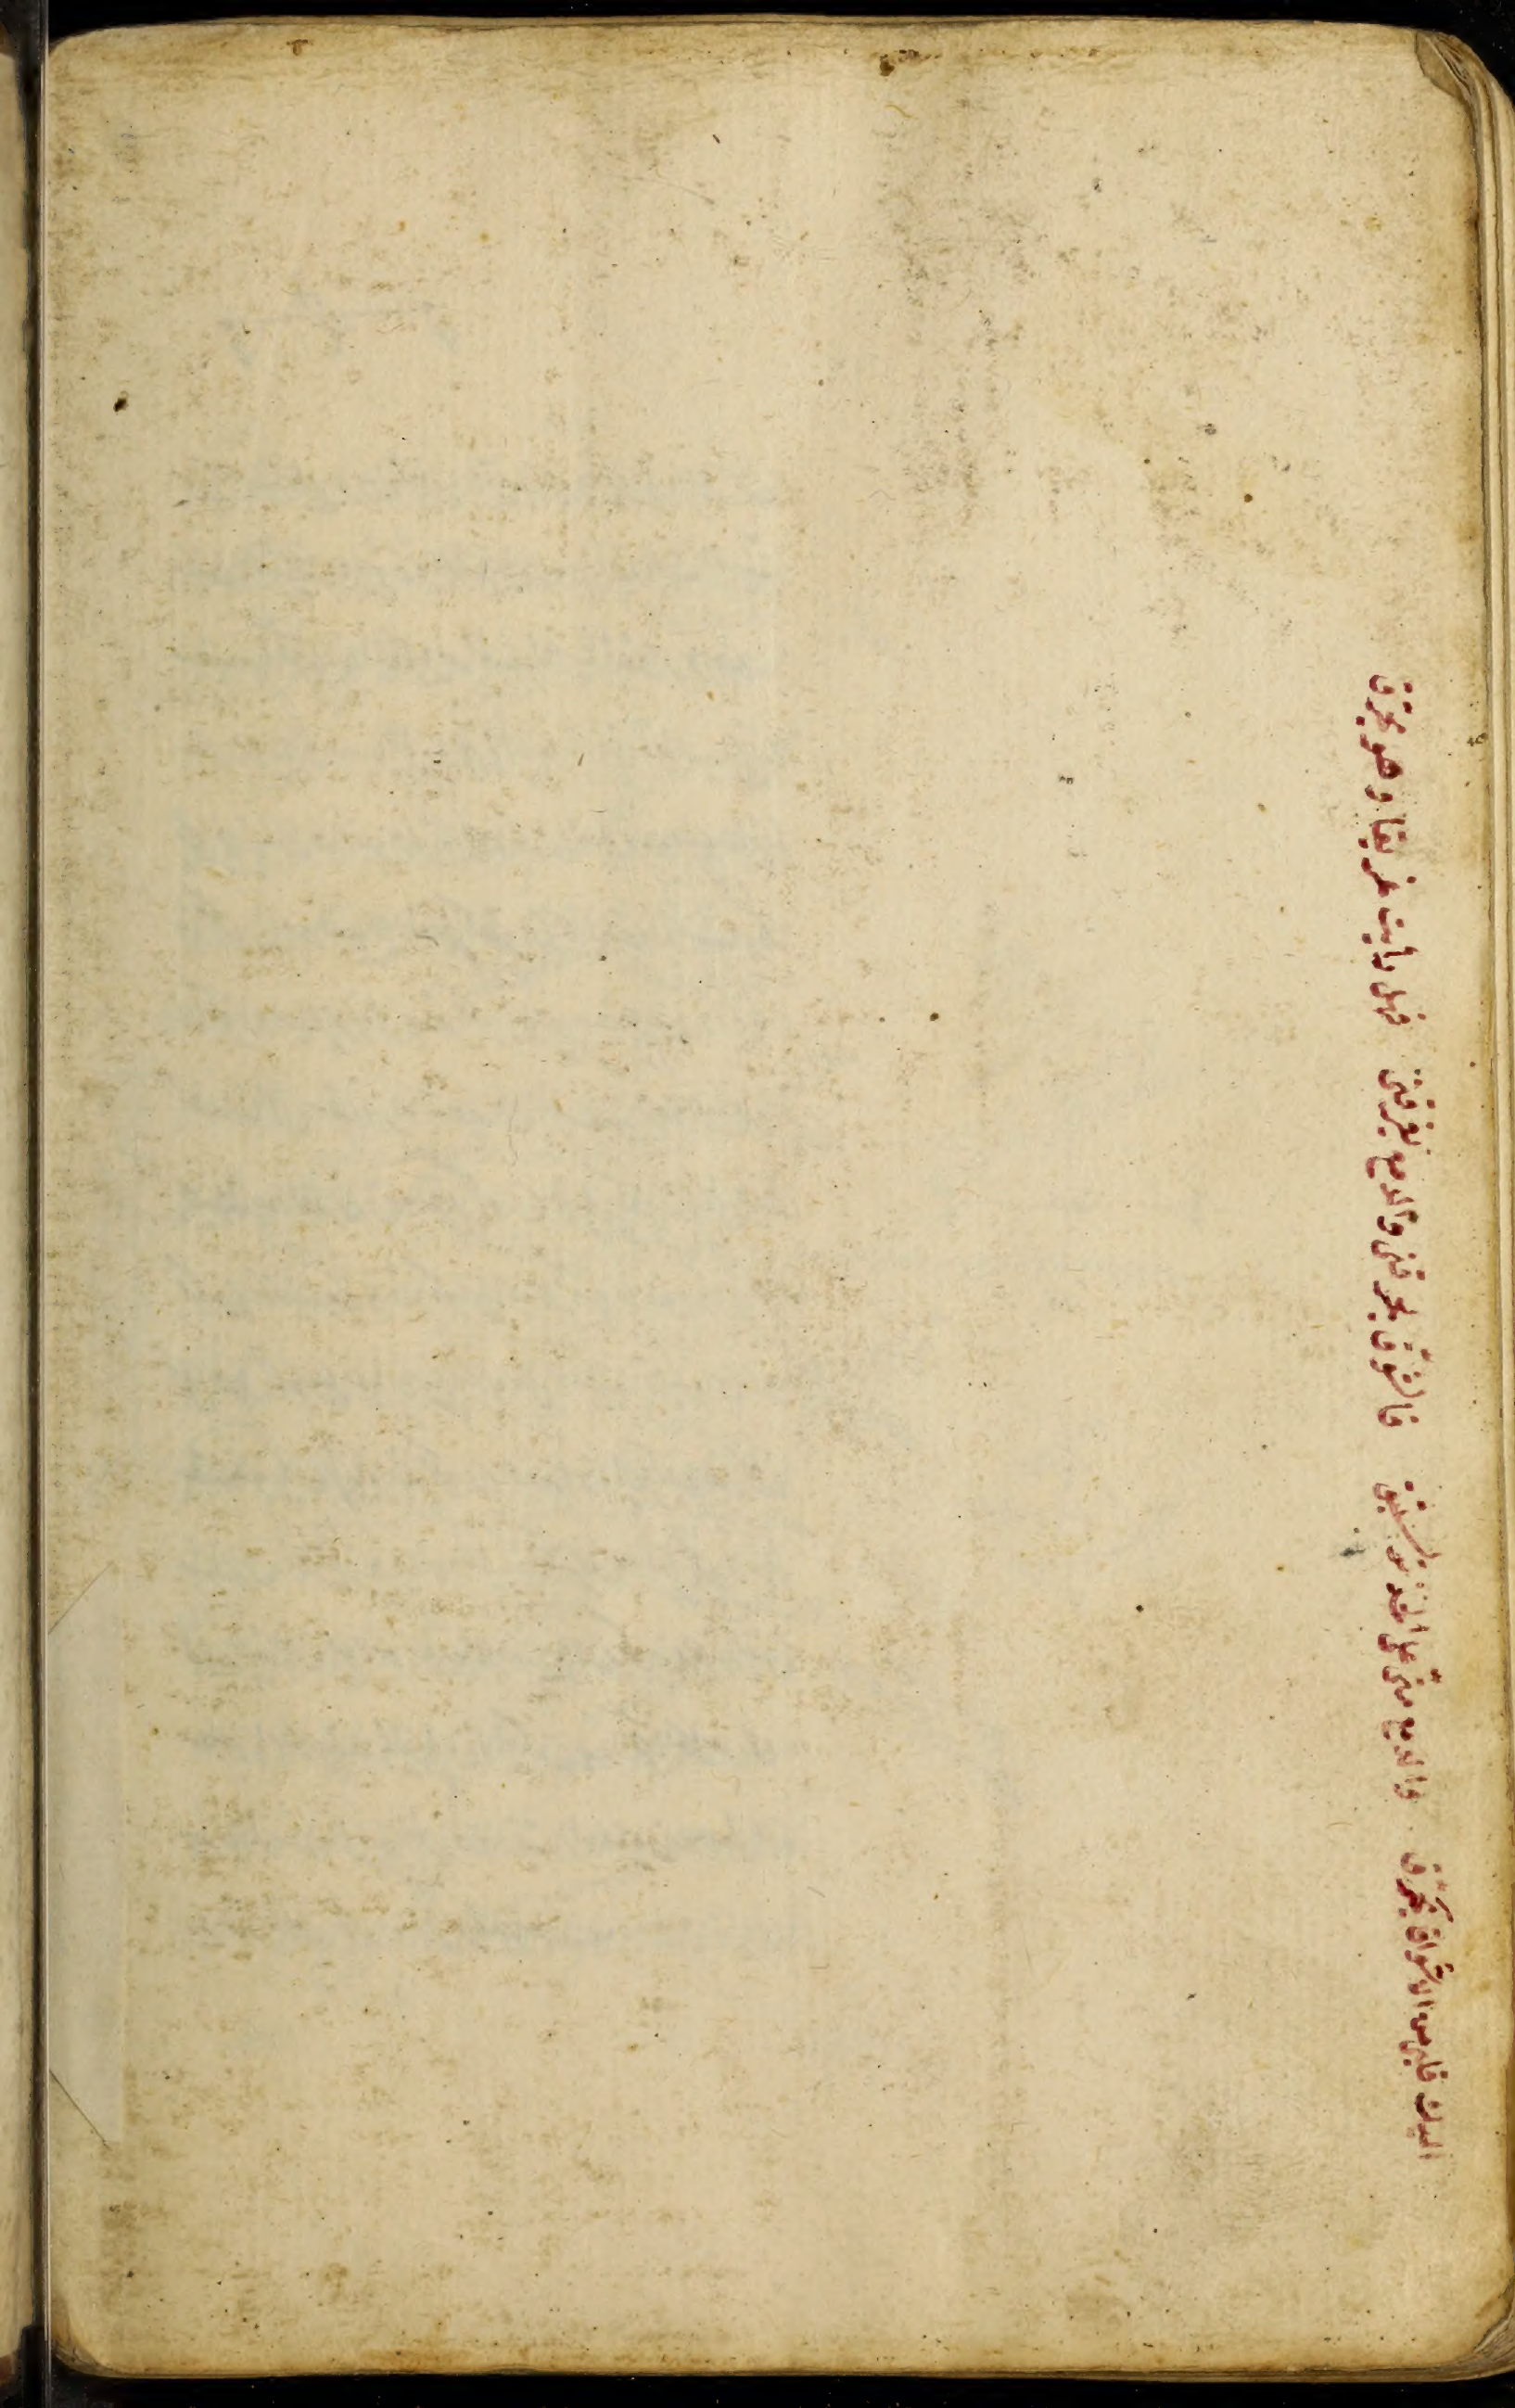 اليك قلبي من الاشواق يحترق والدمع منّي على الخد يستبق فالشوق يحرقني والدمع يغرقني فهل رأيت غريقا وهو يحترق